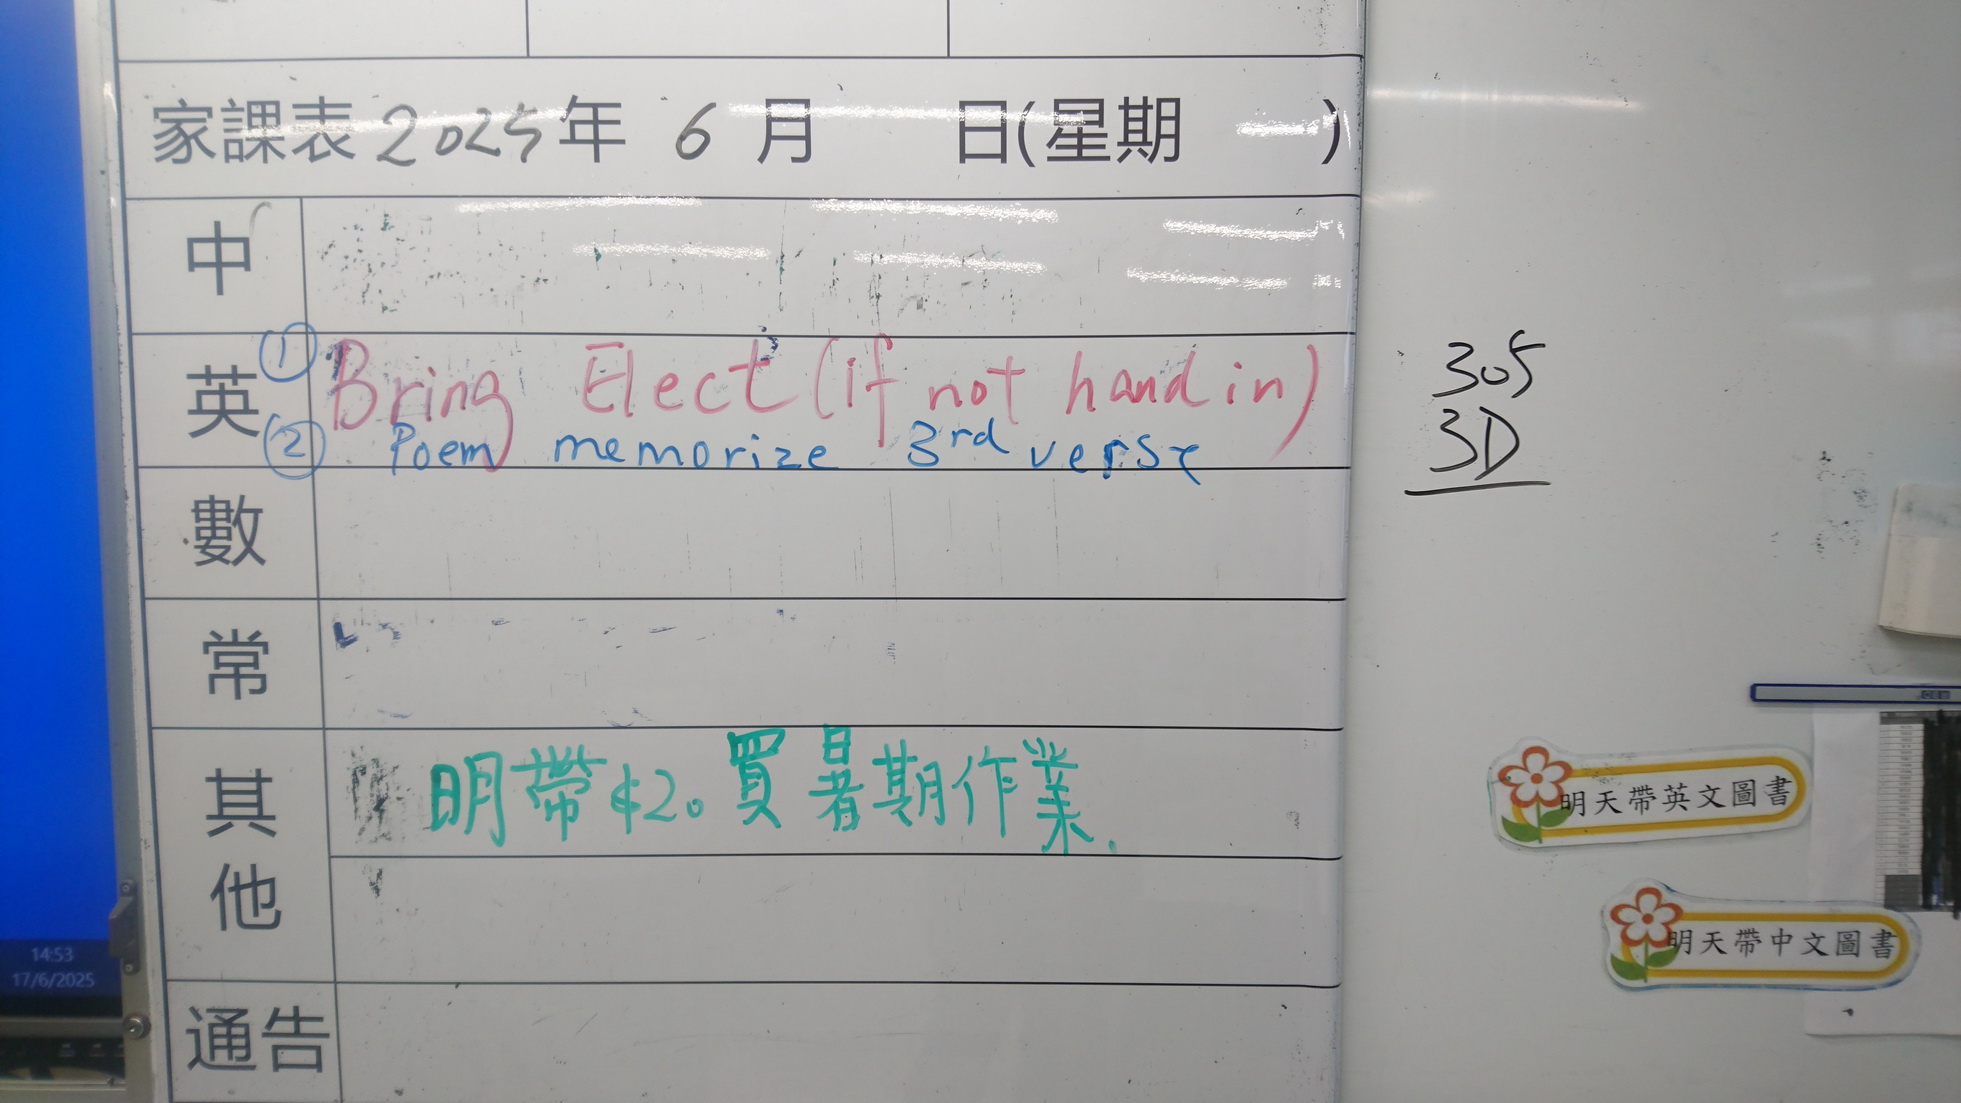 家課表 2025年 6月 日(星期 )
中
英 ① Bring Elect (if not hand in)
② Poem memorize 3rd verse
數
常
其他 明帶$20買暑期作業.
通告
305
3D
明天帶英文圖書
明天帶中文圖書
14:53
17/6/2025